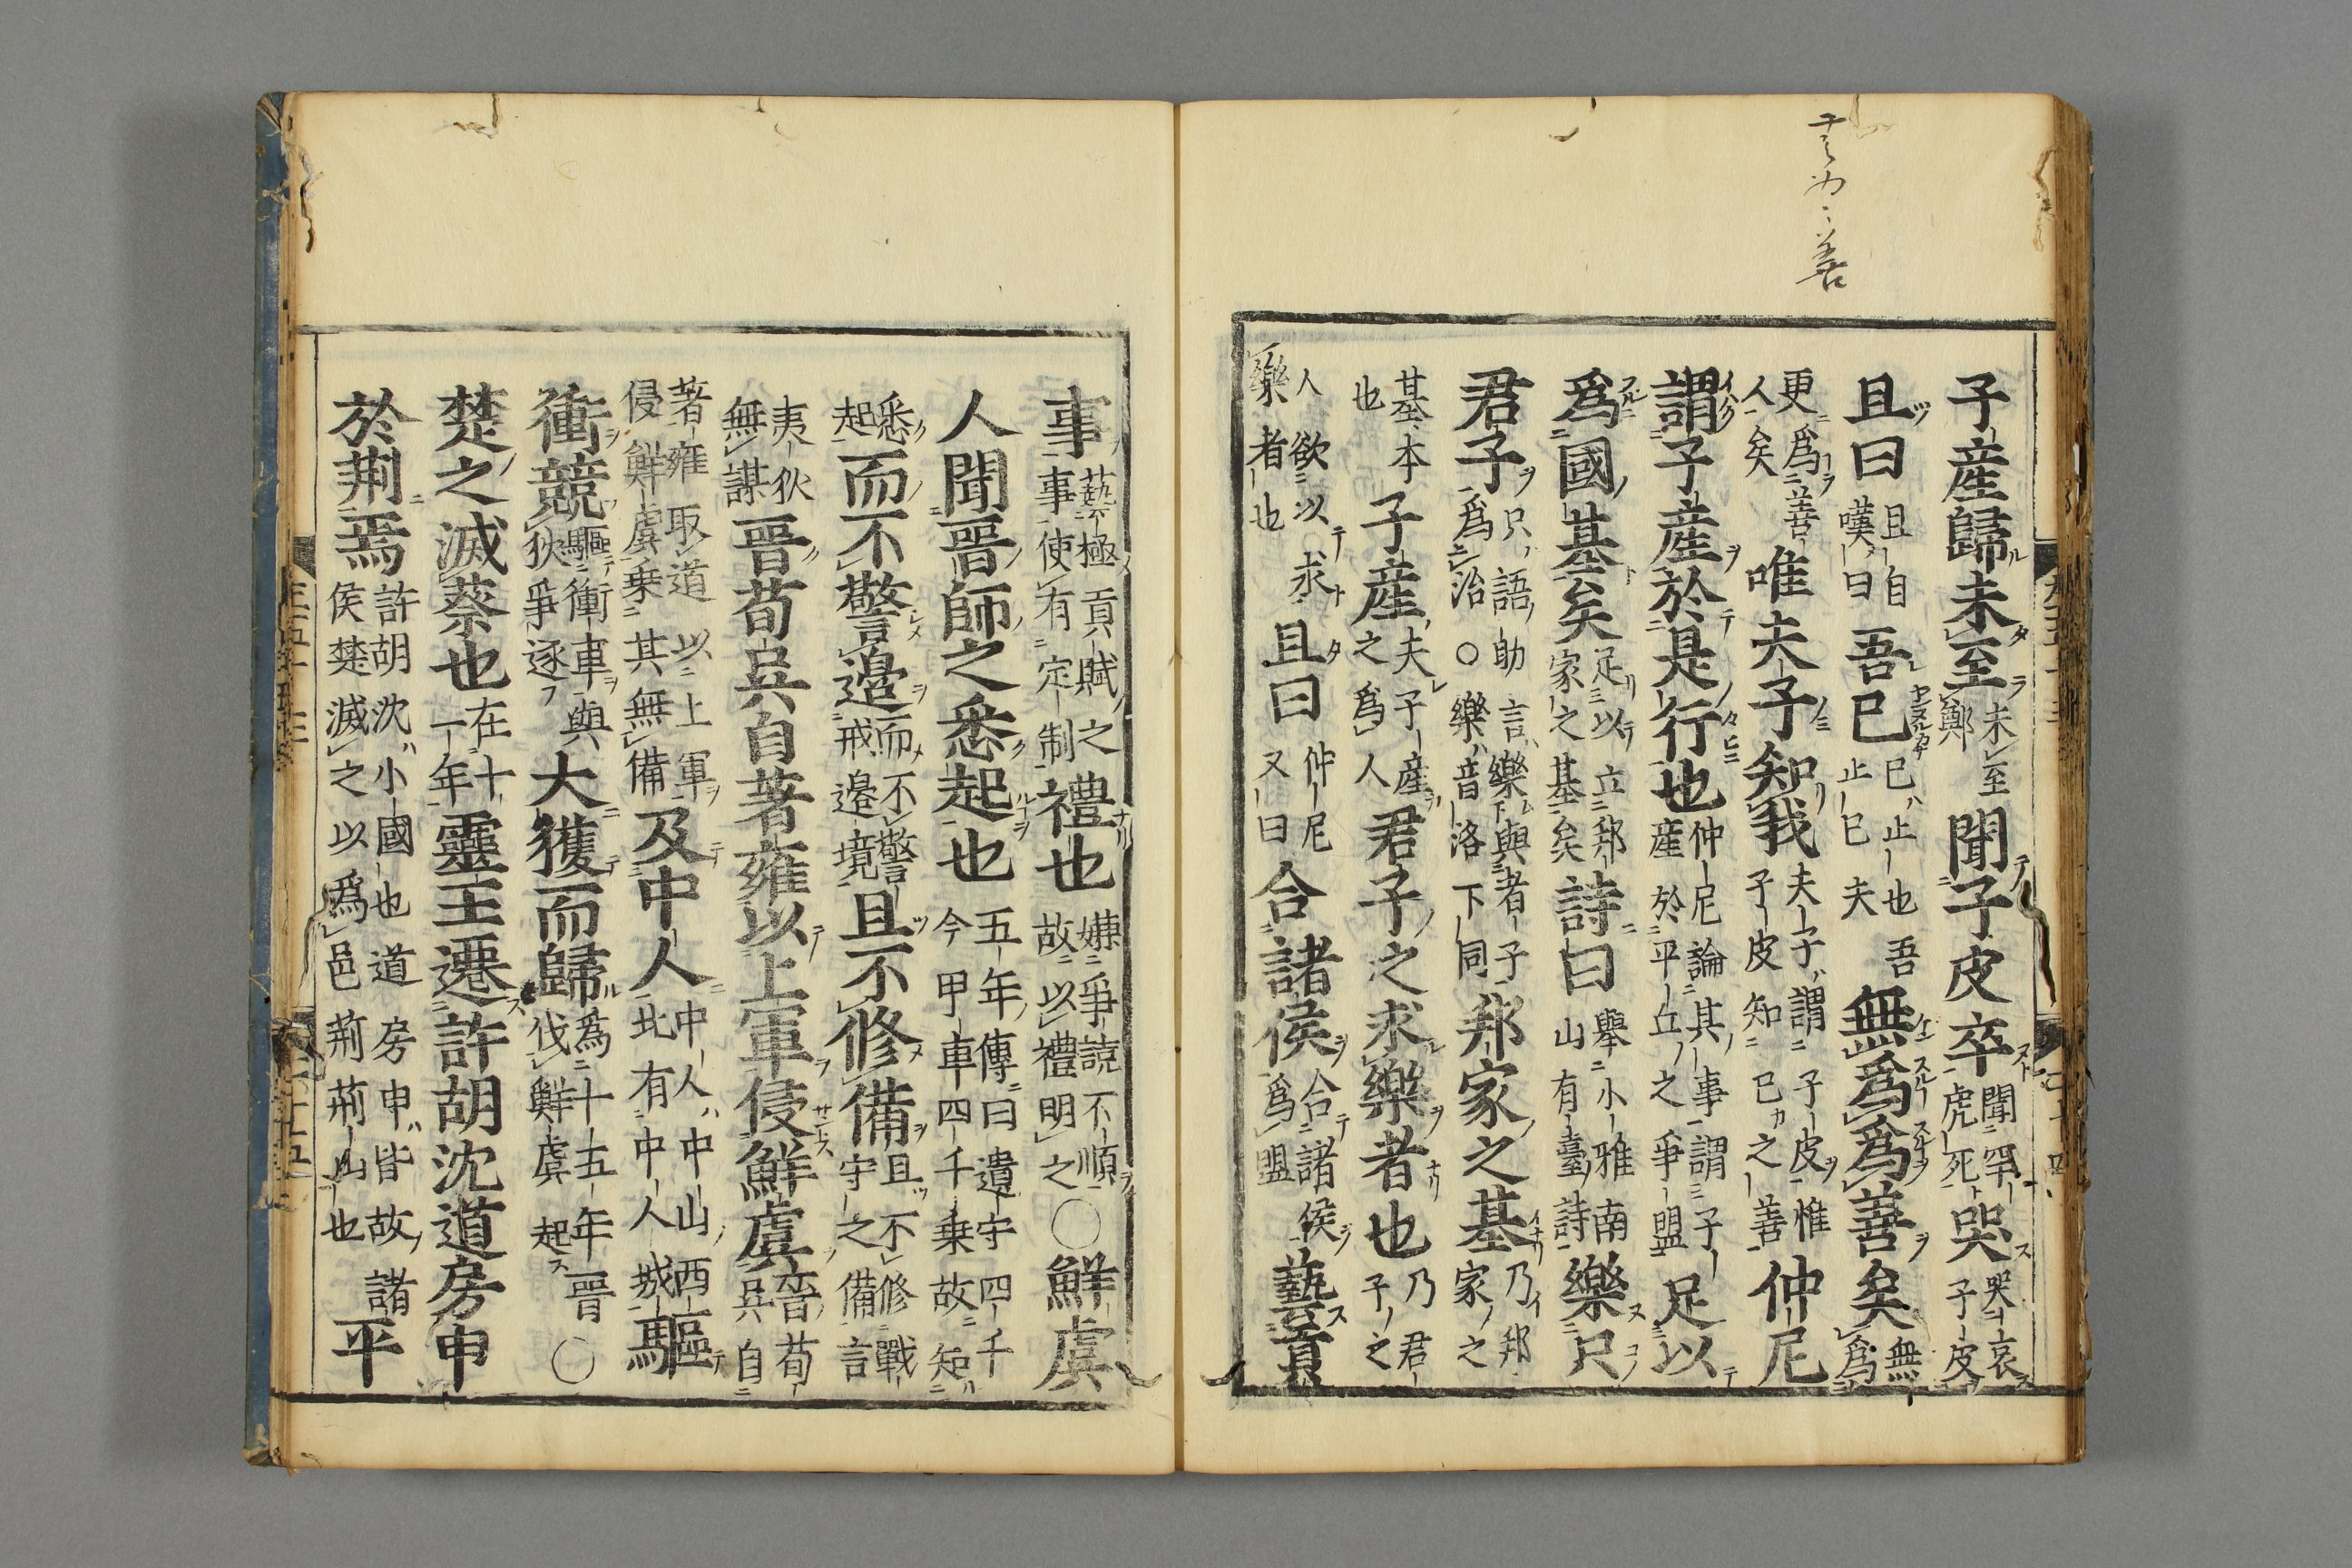 子産歸未至未至鄭聞子皮卒聞罕虎死哭哭哀子皮
且曰且自嘆曰吾已已止也吾止已夫無爲爲善矣無爲
更爲善人矣唯夫子知我夫子謂子皮惟子皮知已之善仲尼
謂子産於是行也仲尼論其事謂子産於平丘之爭盟足以
爲國基矣足以立邦家之基矣詩曰舉小雅南山有臺詩樂只
君子只語助言樂與者子爲治○樂音洛下同邦家之基乃邦家之
基本也子産夫子産之爲人君子之求樂者也乃君子之
人欲以求樂者也且曰仲尼又曰合諸侯合諸侯爲盟藝貢
事藝極貢賦之事使有定制禮也嫌爭競不順故以禮明之○鮮虞
人聞晉師之悉起也五年傳曰遺守四千今甲車四千乗故知
悉起而不警邊而不警戒邊境且不修備且不修戰守之備言
夷狄無謀晉荀呉自著雍以上軍侵鮮虞晉荀呉自
著雍取道以上軍侵鮮虞乗其無備及中人中人中山西北有中人城驅
衝競驅衝車與狄爭逐大獲而歸爲十五年晉伐鮮虞起○
楚之滅蔡也在十一年靈王遷許胡沈道房申
於荆焉許胡沈小國也道房申皆故諸侯楚滅之以爲邑荆荆山也平